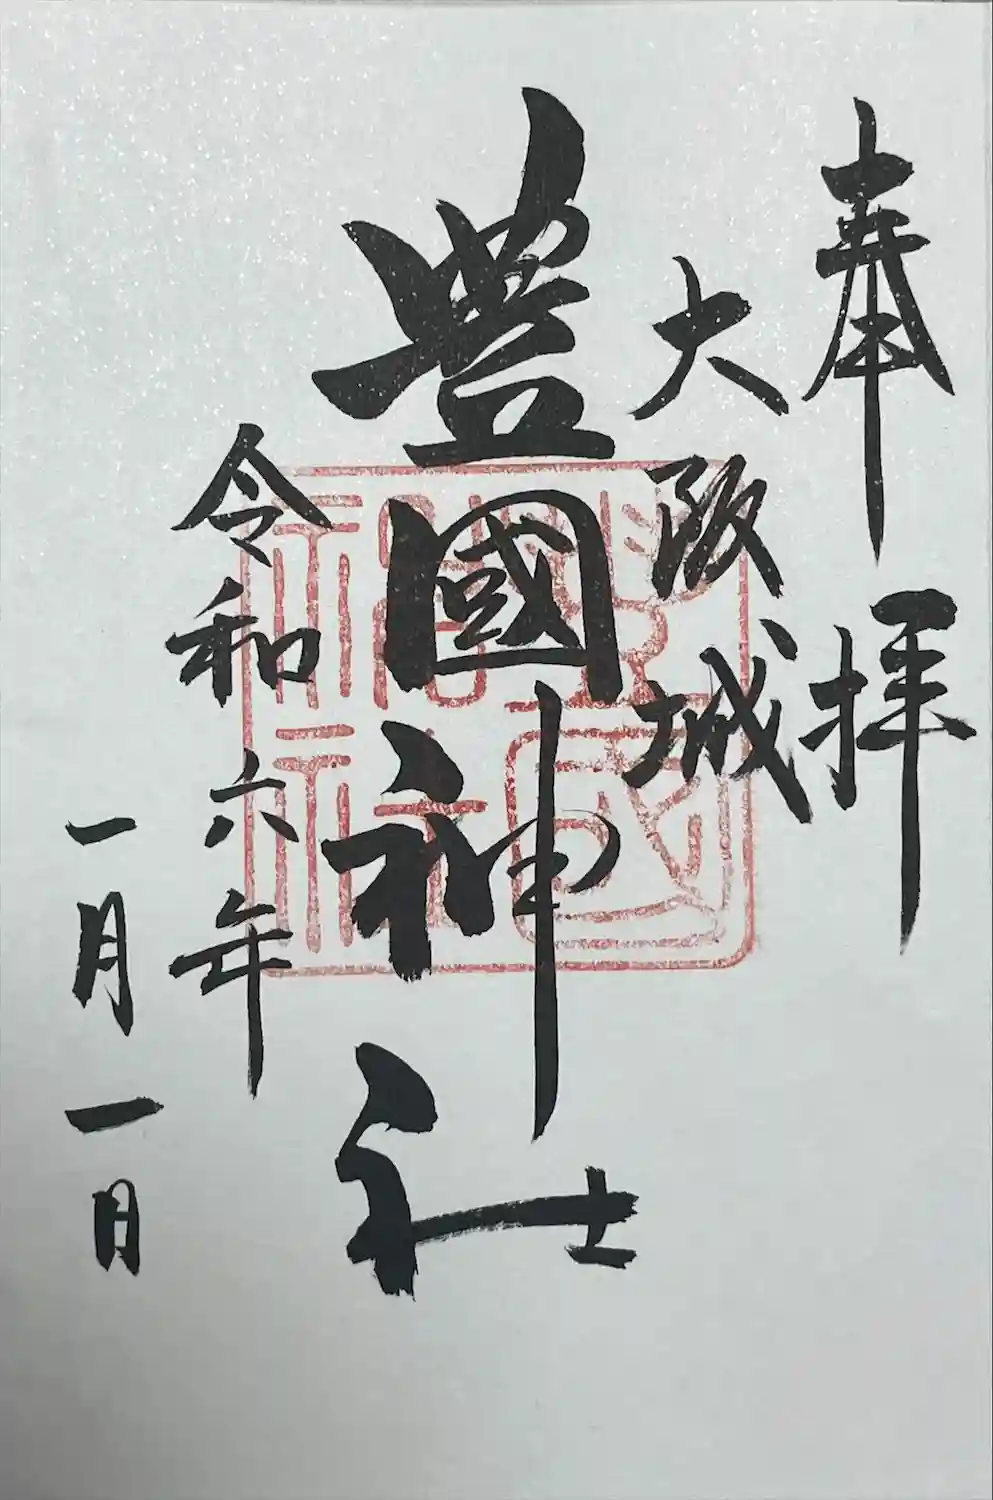 奉拝
大阪城
豊國神社
令和六年
一月一日
豊國神社